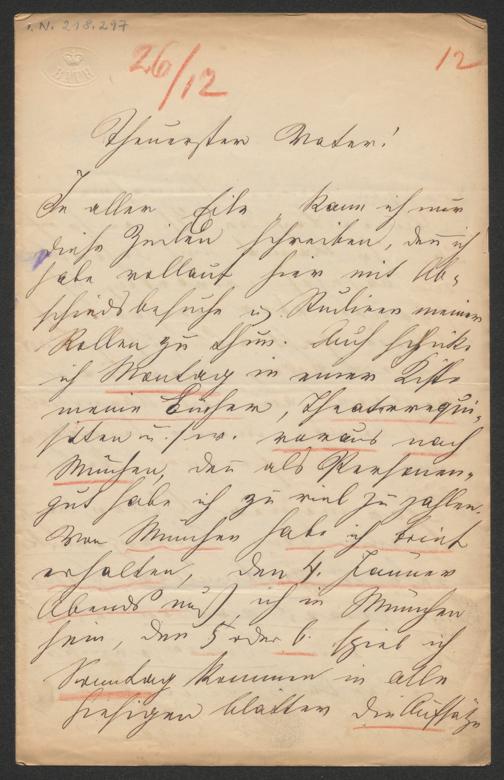 I. N. 218.297
26/12
12
BATH
Theuerster Vater!
In aller Eile kann ich nur
diese Zeilen schreiben, den̄ ich
habe vollauf hier mit Ab-
schiedsbesuche u. Studiren meiner
Rollen zu thun. Auch schicke
ich Montag in einer Kiste
meine Bücher, Theaterrequi-
siten u.s.w. voraus nach
München, den̄ als Personen-
gut habe ich zu viel zu zahlen.
Von München habe ich
erhalten, den 4. Jänner
Abends muß ich in München
sein, den 5 oder 6. spiel ich
Sonntag kommen in alle
hiesigen Blätter die Aufsätze